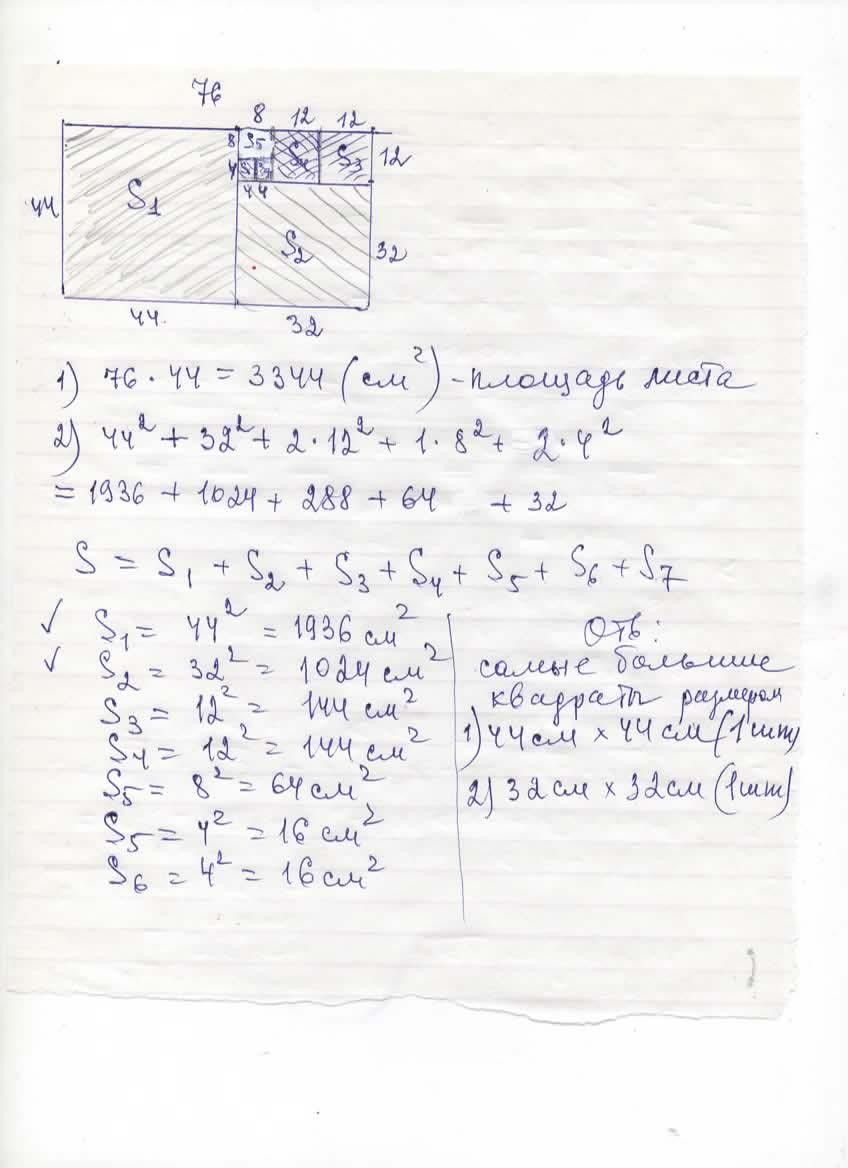 76
8 12 12
8 S5 S4 S3 12
4
44 S1 4 4
S2 32
44 32
1) 76 · 44 = 3344 (см²) - площадь листа
2) 44² + 32² + 2·12² + 1·8² + 2·4²
= 1936 + 1024 + 288 + 64 + 32
S = S1 + S2 + S3 + S4 + S5 + S6 + S7
✓ S1 = 44² = 1936 см²
✓ S2 = 32² = 1024 см²
S3 = 12² = 144 см²
S4 = 12² = 144 см²
S5 = 8² = 64 см²
S5 = 4² = 16 см²
S6 = 4² = 16 см²
Отв:
самые большие
квадраты размером
1) 44 см × 44 см (1 шт)
2) 32 см × 32 см (1 шт)